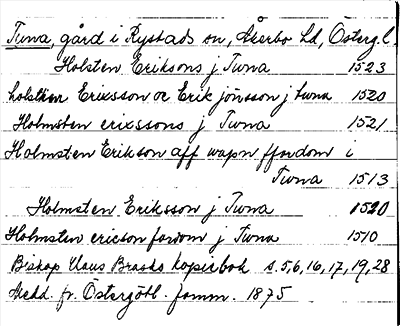 Tuna, gård i Rystads sn, Åkerbo hd, Östergl.
Holsten Eriksons j Tuna 1523
holsthen Erixsson oc Erik jönsson j tuna 1520
Holmsten erixssons j Tuna 1521
Holmsten Erikson aff wapn ffordom i
Tuna 1513
Holmsten Eriksson j Tuna 1520
Holmsten ericson fordom j Tuna 1510
Biskop Hans Brasks kopiebok s. 5, 6, 16, 17, 19, 28
Medd. fr. Östergötl. fornm. 1875